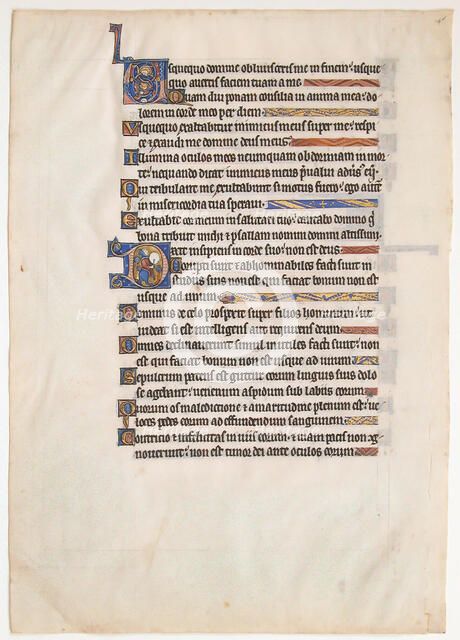 Usquequo domine obliuisceris me in finem: usque
quo auertis faciem tuam a me
Quam diu ponam consilia in anima mea: do
lorem in corde meo per diem
Usquequo exaltabitur inimicus meus super me: respi
ce & exaudi me domine deus meus
Illumina oculos meos ne umquam obdormiam in mor
te: nequando dicat inimicus meus
Qui tribulant me exultabunt si motus fuero: ego
in misericordia tua speraui
Exultabit cor meum in salutari tuo: cantabo domino
bona tribuit michi & psallam nomini domini altissimi
Dixit insipiens in corde suo: non est deus
Corrupti sunt & abhominabiles facti sunt in
studiis suis non est qui faciat bonum non est
usque ad unum
Dominus de celo prospexit super filios hominum: ut
uideat si est intelligens aut requirens deum
Omnes declinauerunt simul inutiles facti sunt: non
est qui faciat bonum non est usque ad unum
Sepulcrum patens est guttur eorum linguis suis dolo
se agebant: uenenum aspidum sub labiis eorum
Quorum os maledictione & amaritudine plenum est: ue
loces pedes eorum ad effundendum sanguinem
Contricio & infelicitas in uiis eorum: & uiam pacis non
nouerunt: non est timor dei ante oculos eorum
Heritage